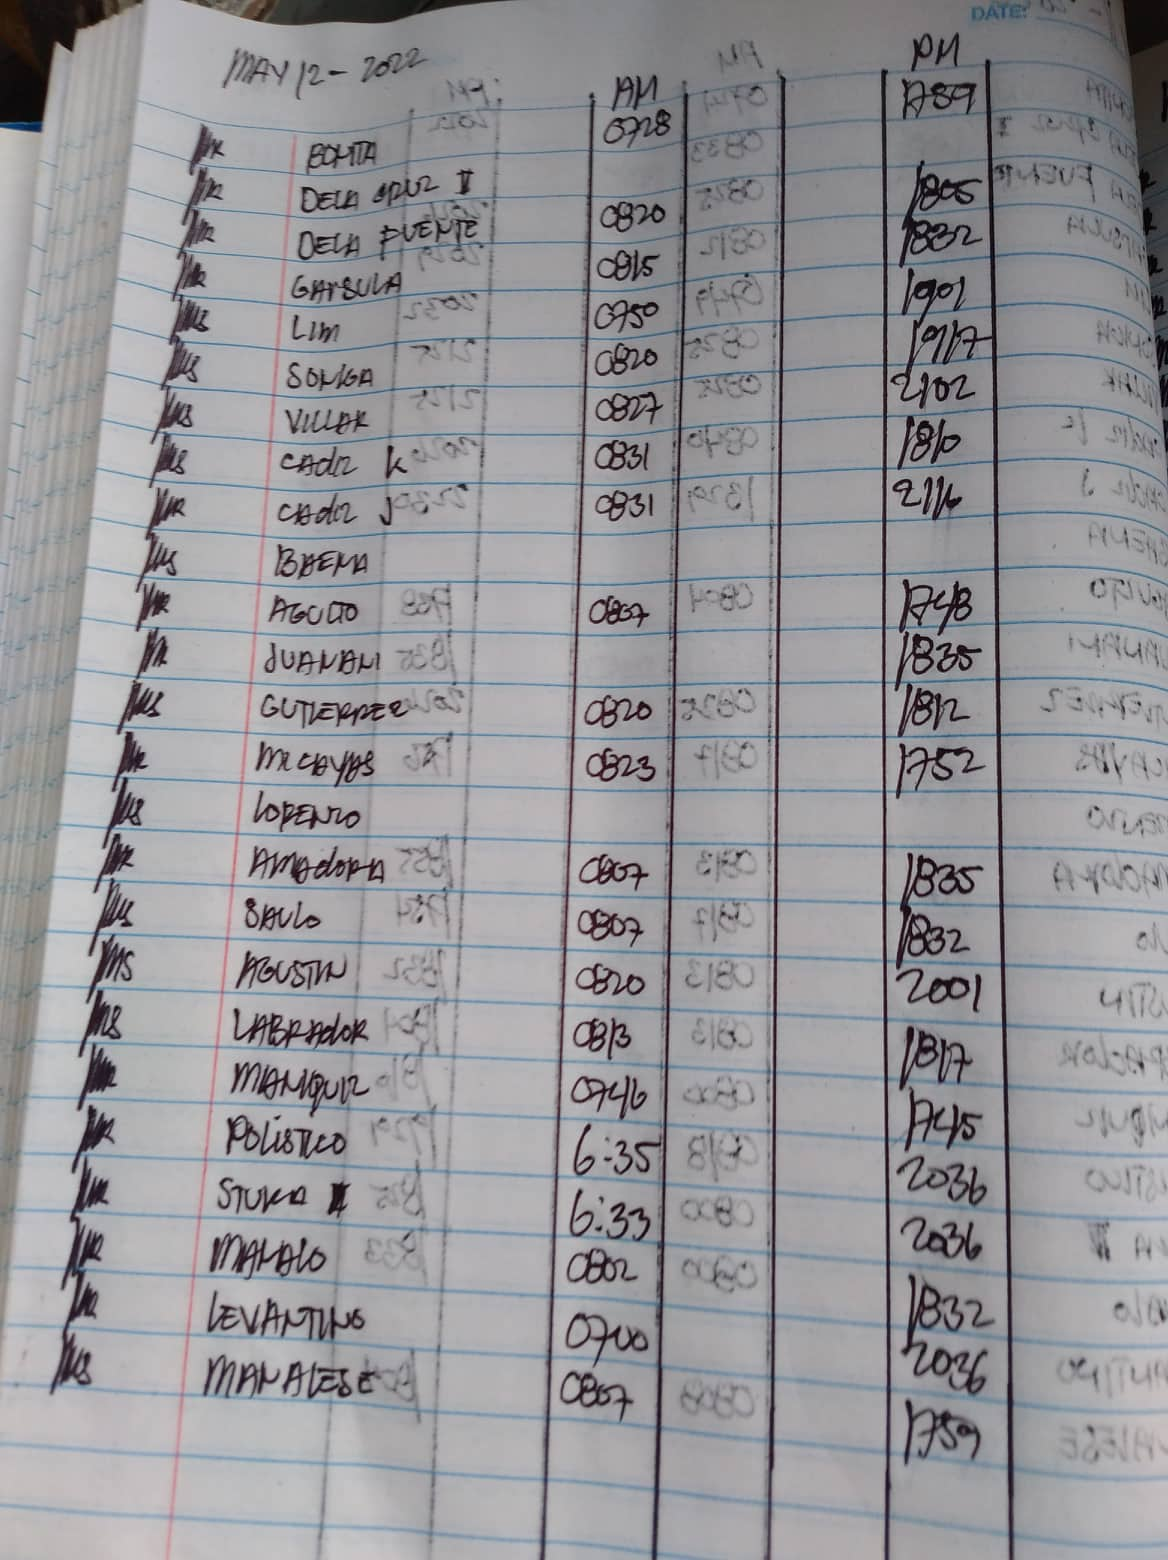 DATE:
MAY 12 - 2022 AM PM
Mr BONITA 0728 1759
Mr DELA CRUZ
Mr DELA FUENTE 0820 1805
Mr GARSULA 0815 1832
Ms LIM 0750 1901
Ms SONGA 0820 1917
Ms VILLAR 0827 2102
Ms CADIZ K 0831 1810
Mr CADIZ J 0831 2116
Ms BAENA
Mr AGUCTO 0807 1748
Mr JUANANI 1835
Ms GUTIERREZ 0820 1812
Mr McCAYAS 0823 1752
Ms LORENZO
Mr AMADORA 0807 1835
Ms SAULO 0807 1832
Ms AGUSTIN 0820 2001
Ms LABRADOR 0813 1817
Mr MANIQUIZ 0746 1745
Mr POLISTICO 6:35 2036
Mr STUKA 6:33 2036
Mr MANALO 0802 1832
Mr LEVANTINO 0700 2036
Ms MANALESE 0807 1759